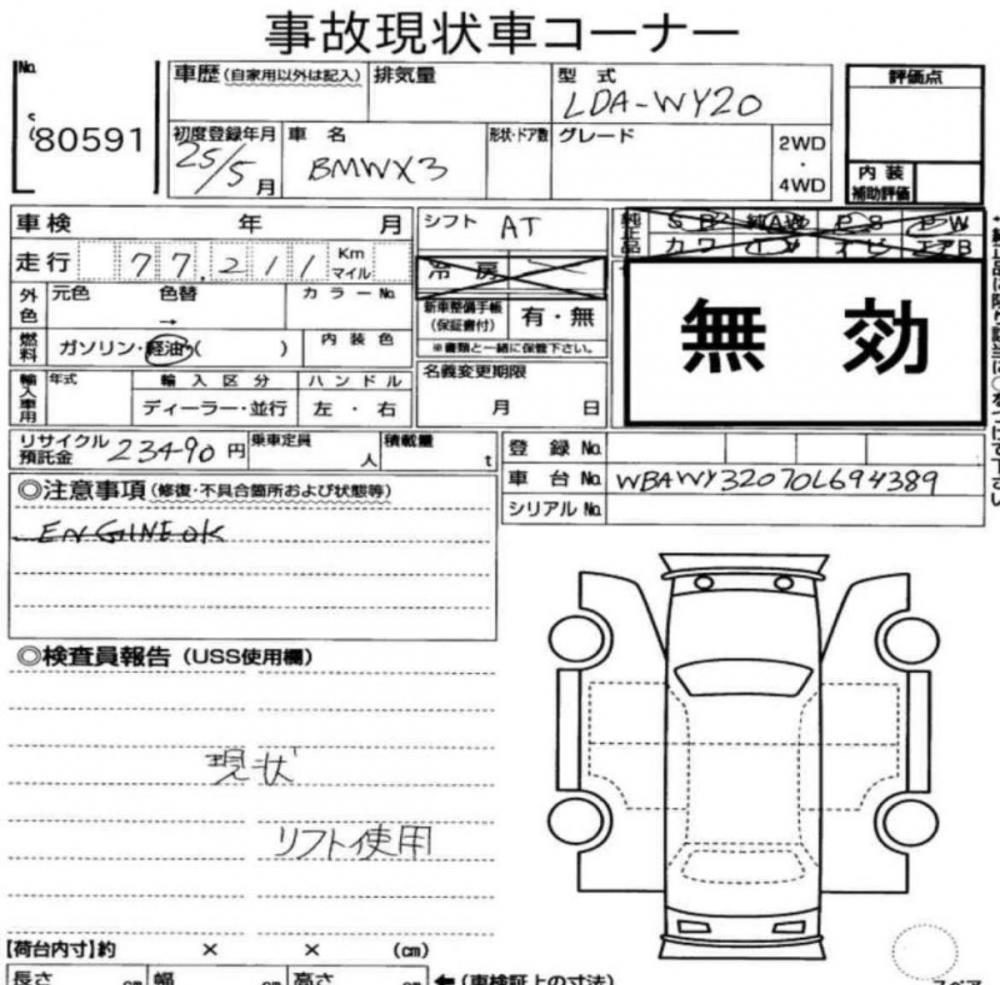 事故現状車コーナー
No.
80591
車歴(自家用以外は記入) 排気量 型式 LDA-WY20
初度登録年月 25/5月 車名 BMWX3 形状・ドア数 グレード 2WD・4WD
評価点
内装補助評価
車検 年 月
走行 77,211 Km マイル
外色 元色 色替 → カラーNo.
燃料 ガソリン・軽油・( ) 内装色
輸入車用 年式 輸入区分 ハンドル
ディーラー・並行 左・右
シフト AT
冷房
新車整備手帳(保証書付) 有・無
※書類と一緒に保管下さい。
名義変更期限
月 日
純正品 SR 純AW P.S P.W
カワ TV ナビ エアB
無効
リサイクル預託金 23490円 乗車定員 人 積載量 t
登録No.
車台No. WBAWY32070L694389
シリアルNo.
◎注意事項(修復・不具合箇所および状態等)
ENGINE OK
◎検査員報告(USS使用欄)
現状
リフト使用
【荷台内寸】約 × × (cm)
長さ cm 幅 cm 高さ cm ←(車検証上の寸法)
スペア